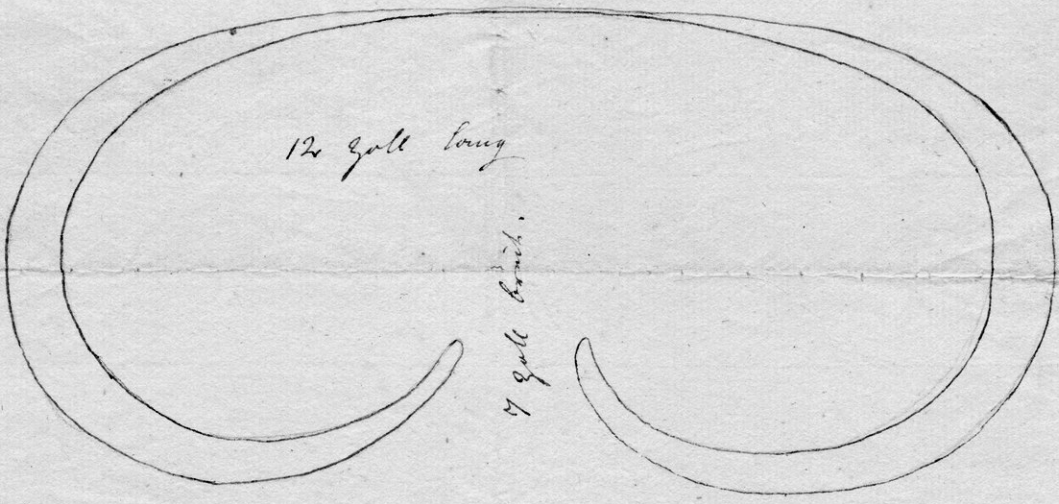 12 Zoll lang
7 Zoll breit.